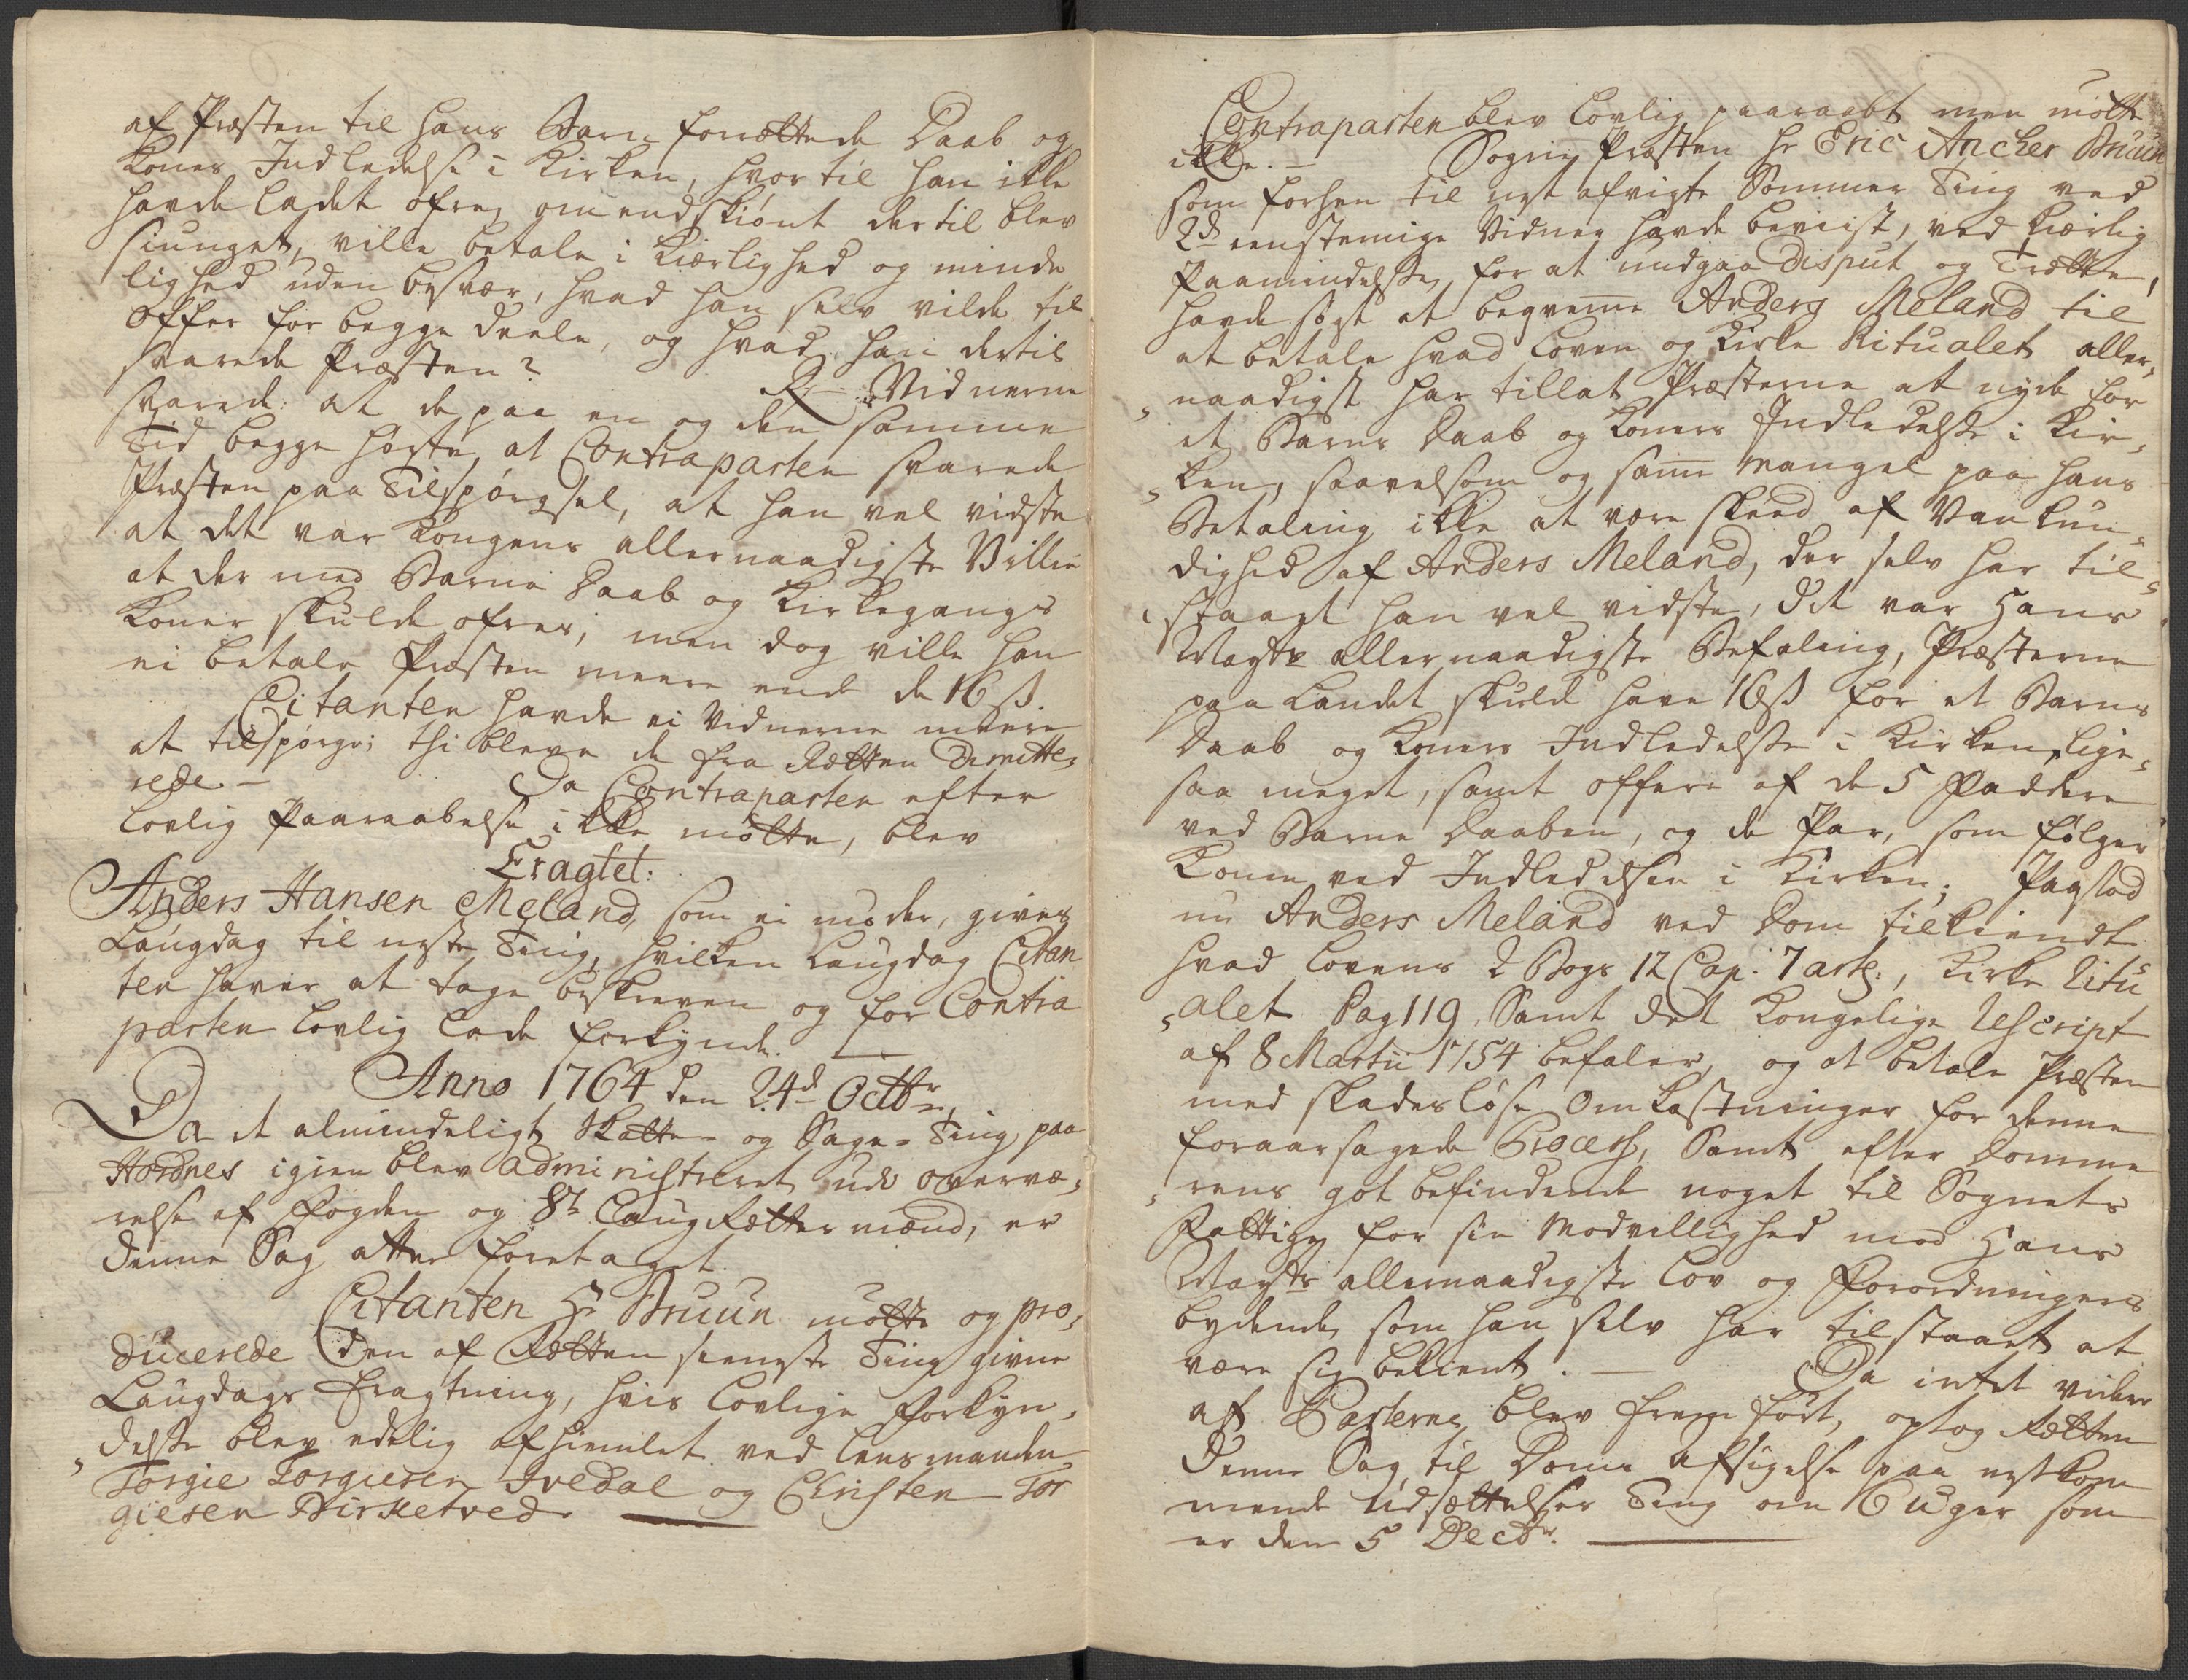 af Præsten til hans Barn forrættede Daab og
Kones Indledelse i Kirken, hvortil han ikke
havde ladet ofre, omendskiønt dertil blev
siunget, ville betale i Kiærlighed og minde
lighed uden besvær, hvad han selv vilde til
Offer for begge Deele, og hvad han dertil
svarede Præsten? R: Vidnerne
svarede: at de paa en og den samme
Tid begge hørte, at Contraparten svarede
Præsten paa Tilspørgsel, at han vel vidste
at det var Kongens allernaadigste Villie
at der med Barne Daab og Kirkegangs
Koner skulde ofres, men dog ville han
ei betale Præsten meere end de 16 ß.
Citanten havde ei Vidnerne meere
at tilspørge; thi bleve de fra Rætten Dimitte,
rede. — Da Contraparten efter
lovlig Paaraabelse ikke mötte, blev
Eragtet:
Anders Hansen Meland, som ei møder, gives
Laugdag til neste Ting, hvilken Laugdag Citan
ten haver at tage beskreven og for Contra
parten lovlig lade forkynde. —
Anno 1764 den 24d Octbr
Da et almindeligt Skatte- og Sage-Ting paa
Hordnes igien blev administreret udi overvæ,
relse af Fogden og 8te Laug Rættesmænd, er
denne Sag atter foretaget.
Citanten Hr Bruun mötte og pro,
ducerede den af Rætten sieneste Ting givne
Laugdags Eragtning, hvis lovlige Forkyn,
delse blev edelig afhiemlet ved Lensmanden
Torgie Torgiesen Ivedal og Christen Tor
giesen Birketved —
Contraparten blev lovlig paaraabt men mötte
ikke. — Sogne Præsten Hr Eric Ancher Bruun
som forhen til nest afvigte Sommer Ting ved
2de eenstemige Vidner havde beviist, ved kiærlig
Paamindelse, for at undgaa Disput og Trætte,
havde søgt at beqvemme Anders Meland til
at betale hvad Loven og Kirke Ritualet aller,
naadigst har tilladt Præsterne at nyde for
et Barns Daab og Koners Indledelse i Kir,
ken, saavelsom og samme Mangel paa hans
Betaling ikke at være skeed af Vankun,
dighed af Anders Meland, der selv har til,
staaet han vel vidste, det var Hans
Mayts allernaadigste Befaling, Præsterne
paa Landet skuld have 16 ß for et Barns
Daab og Koners Indledelse i Kirken, lige,
saa meget, samt offere af de 5 Faddere
ved Barne Daaben, og de Par, som følger
Konen ved Indledelsen i Kirken; Paastod
nu Anders Meland ved Dom tilkiendt
hvad Lovens 2 Bogs 12 Cap. 7 arts:, Kirke Ritu
alet Pag 119, Samt det Kongelige Rescript
af 8 Martii 1754 befaler, og at betale Præsten
med skadesløse Omkostninger for denne
foraarsagede Process, Samt efter Domme
rens got befindende noget til Sognets
Fattige for sin Modvillighed mod Hans
Mayts allernaadigste Lov og Forordningers
bydende, som han selv har tilstaaet at
være sig bekient. — Da intet videre
af Parterne blev frem ført, optog Rætten
denne Sag til Doms Afsigelse paa nestkom
mende Udsættelses Ting om 6 Uger som
er den 5 Decbr. —